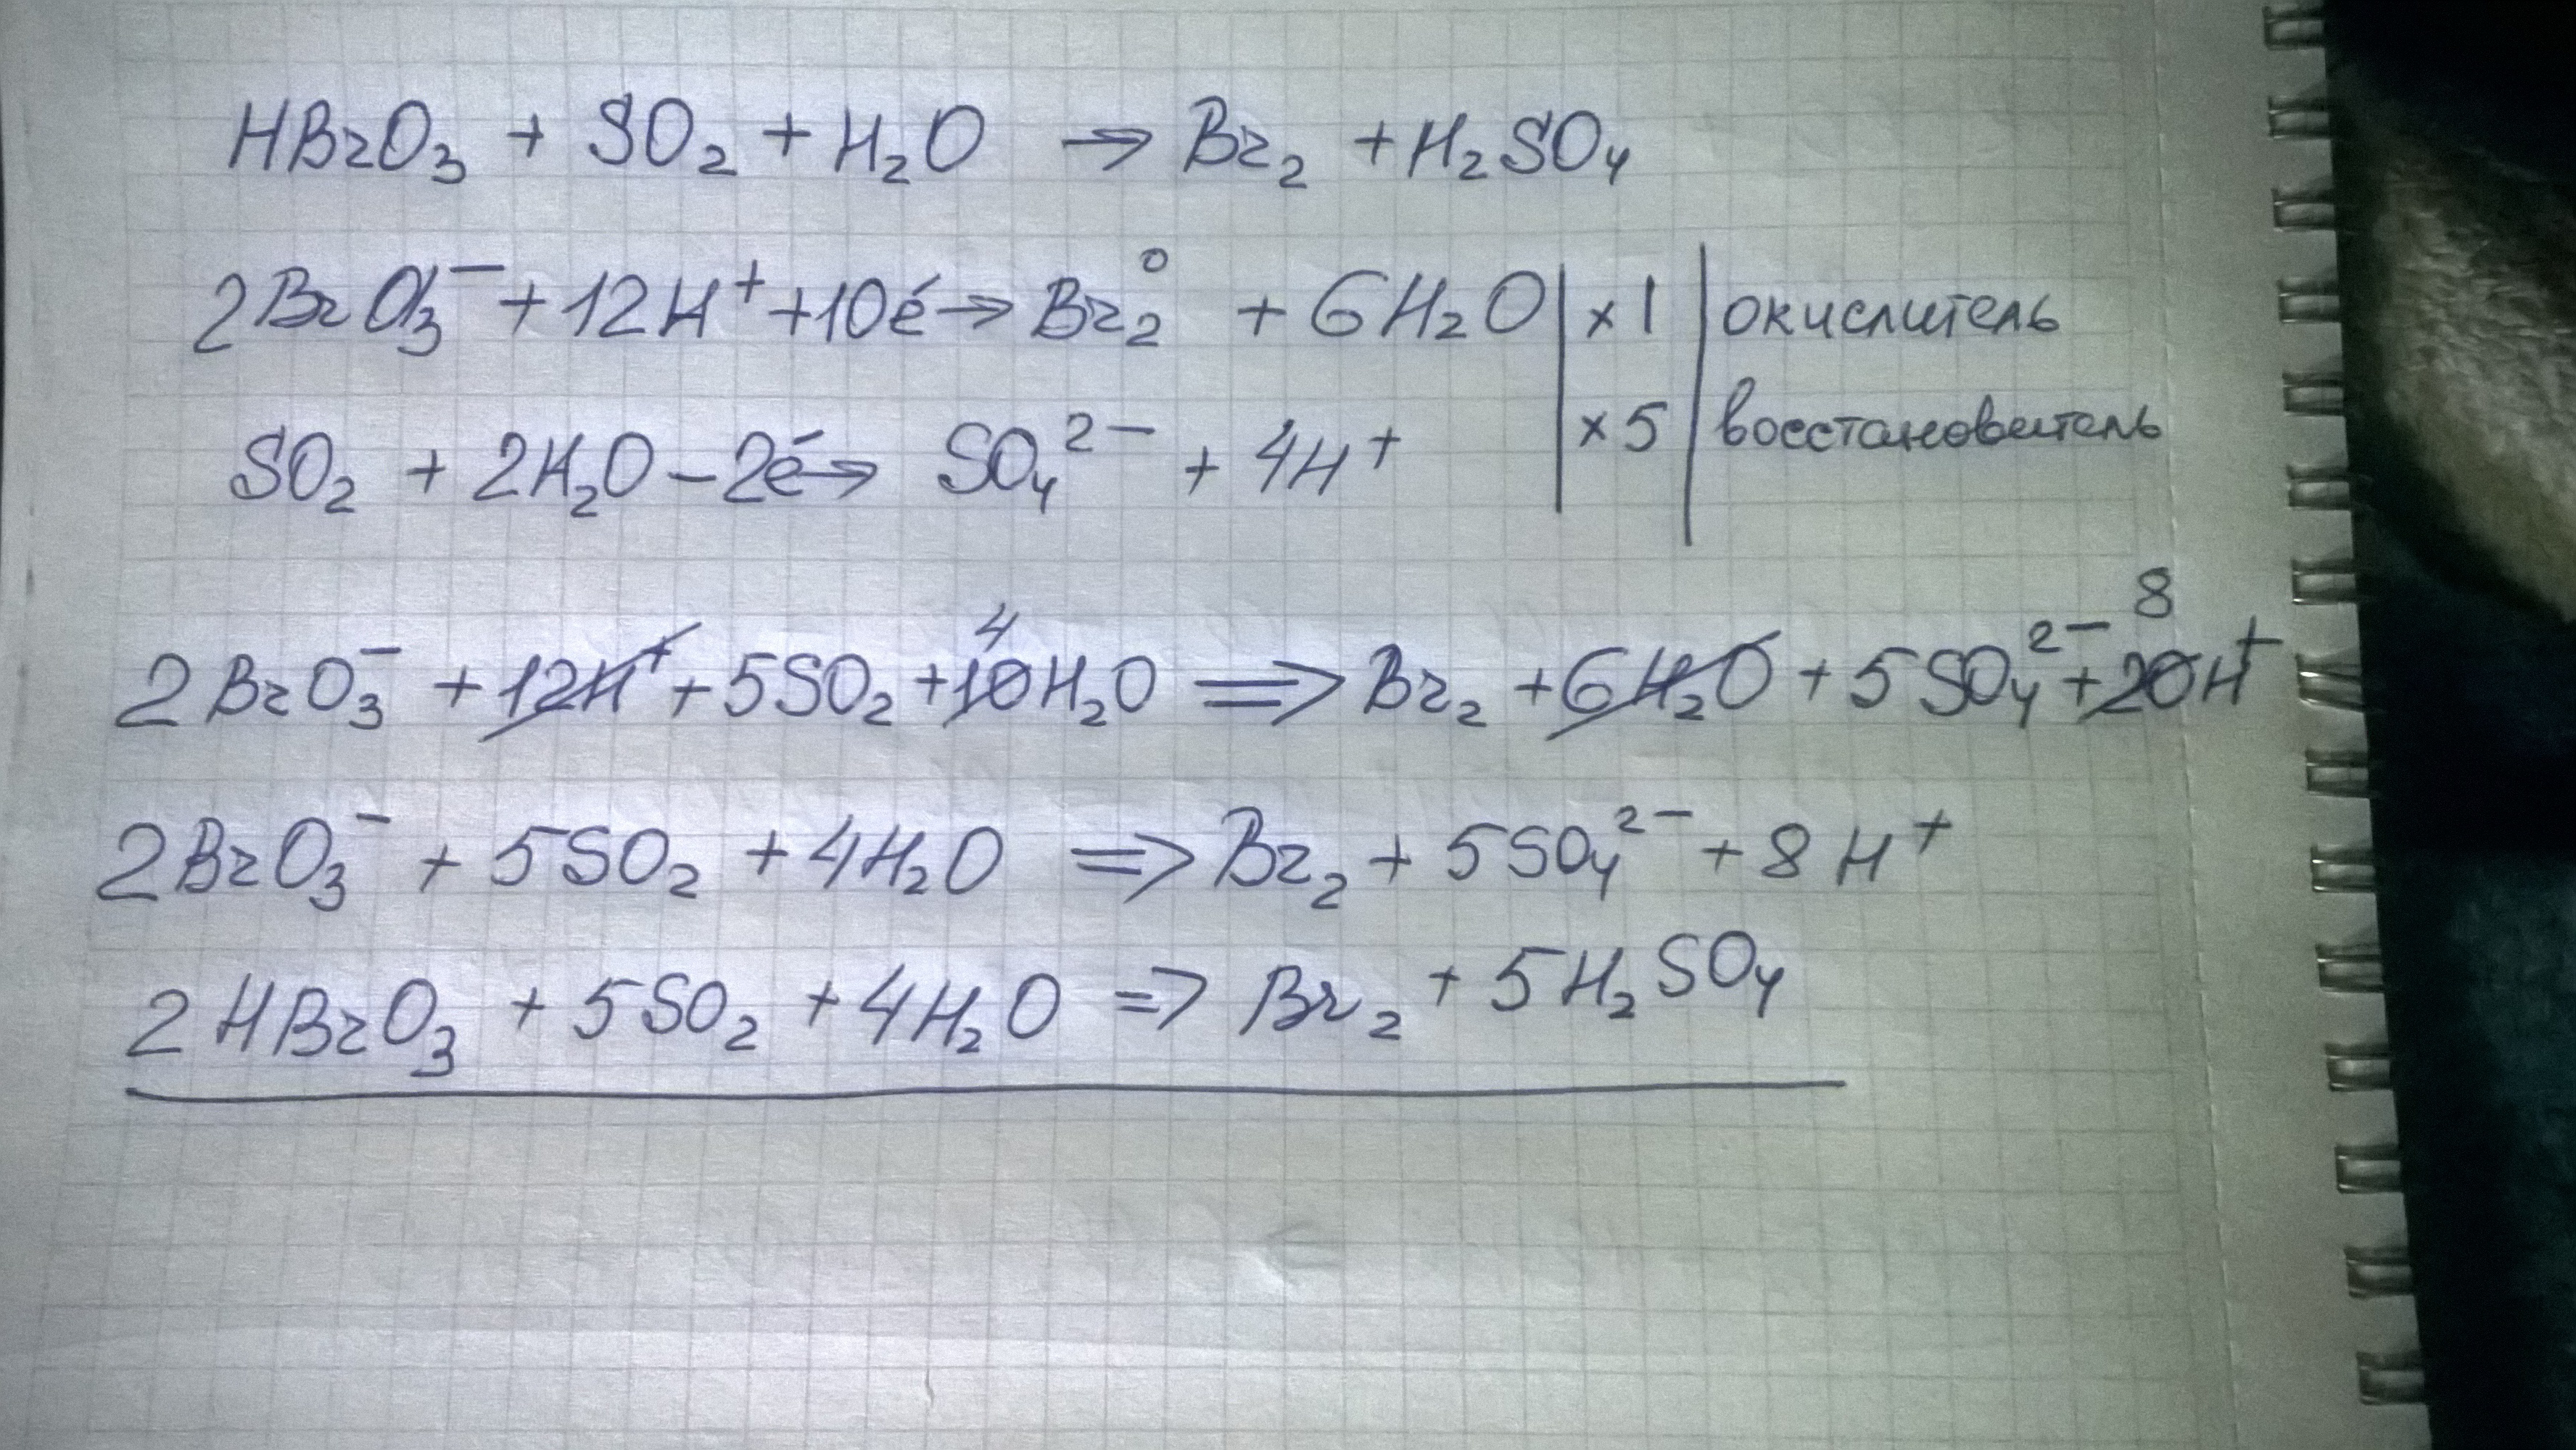 HBrO₃ + SO₂ + H₂O → Br₂ + H₂SO₄
2BrO₃⁻ + 12H⁺ + 10ē → Br₂⁰ + 6H₂O | ×1 | окислитель
SO₂ + 2H₂O – 2ē → SO₄²⁻ + 4H⁺ | ×5 | восстановитель
4 8
2BrO₃⁻ + 12H⁺ + 5SO₂ + 10H₂O ⇒ Br₂ + 6H₂O + 5SO₄²⁻ + 20H⁺
2BrO₃⁻ + 5SO₂ + 4H₂O ⇒ Br₂ + 5SO₄²⁻ + 8H⁺
2HBrO₃ + 5SO₂ + 4H₂O ⇒ Br₂ + 5H₂SO₄